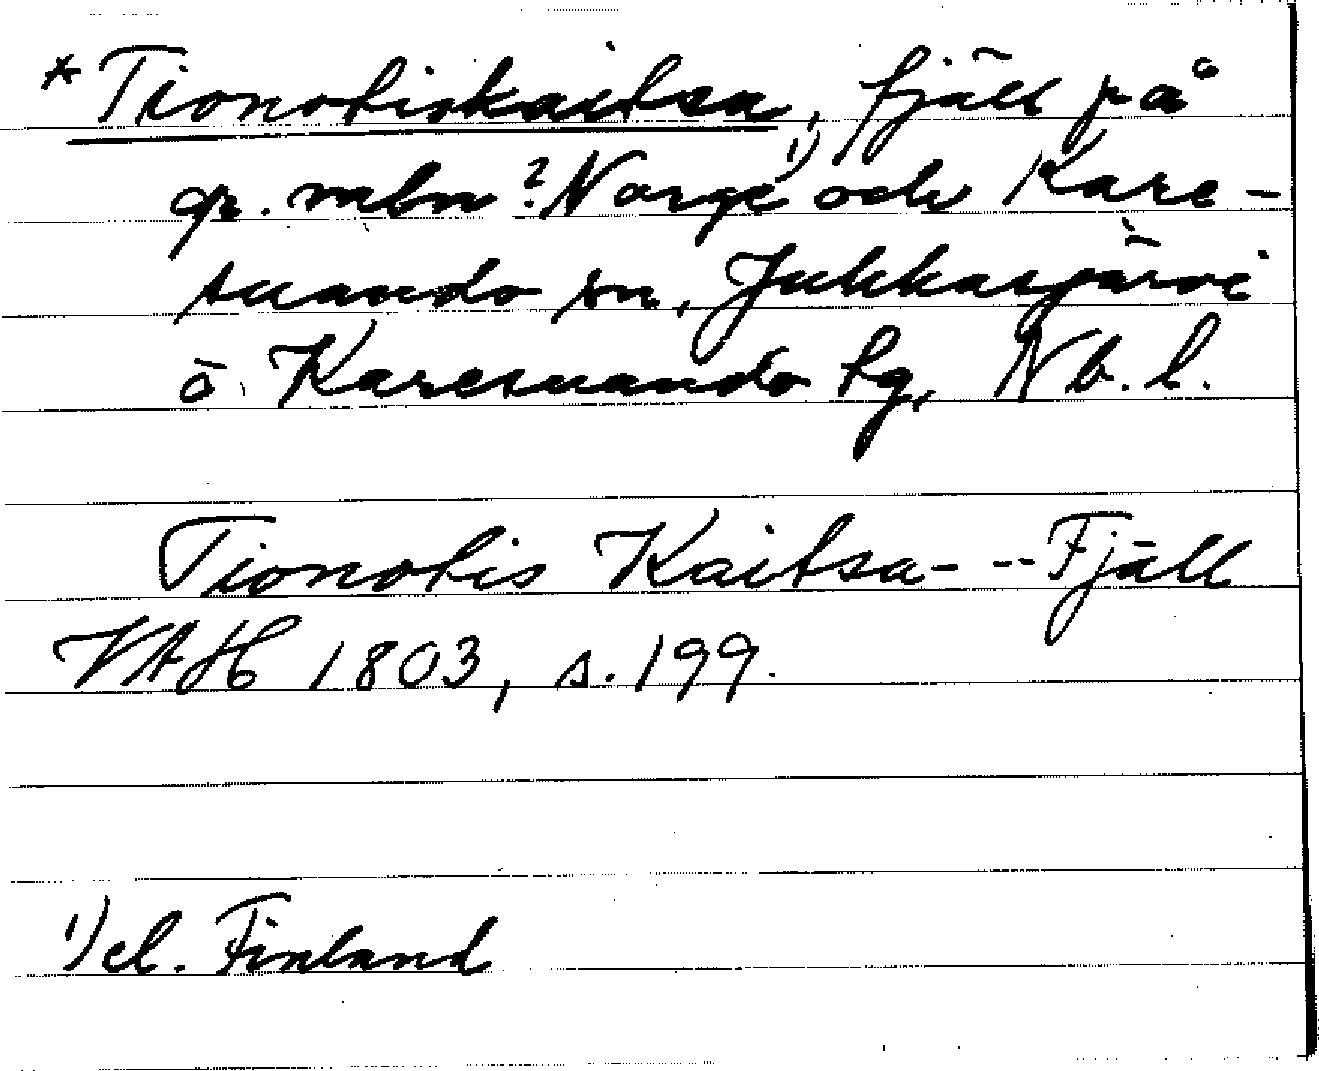 *Tionotiskaitsa, fjäll på
gr. mbn ? Norge¹⁾ och Kare-
suando sn, Jukkasjärvi
o. Karesuando lg, Nb. l.
Tionotis Kaitsa- -- Fjäll
VAH 1803, s. 199.
¹⁾ el. Finland